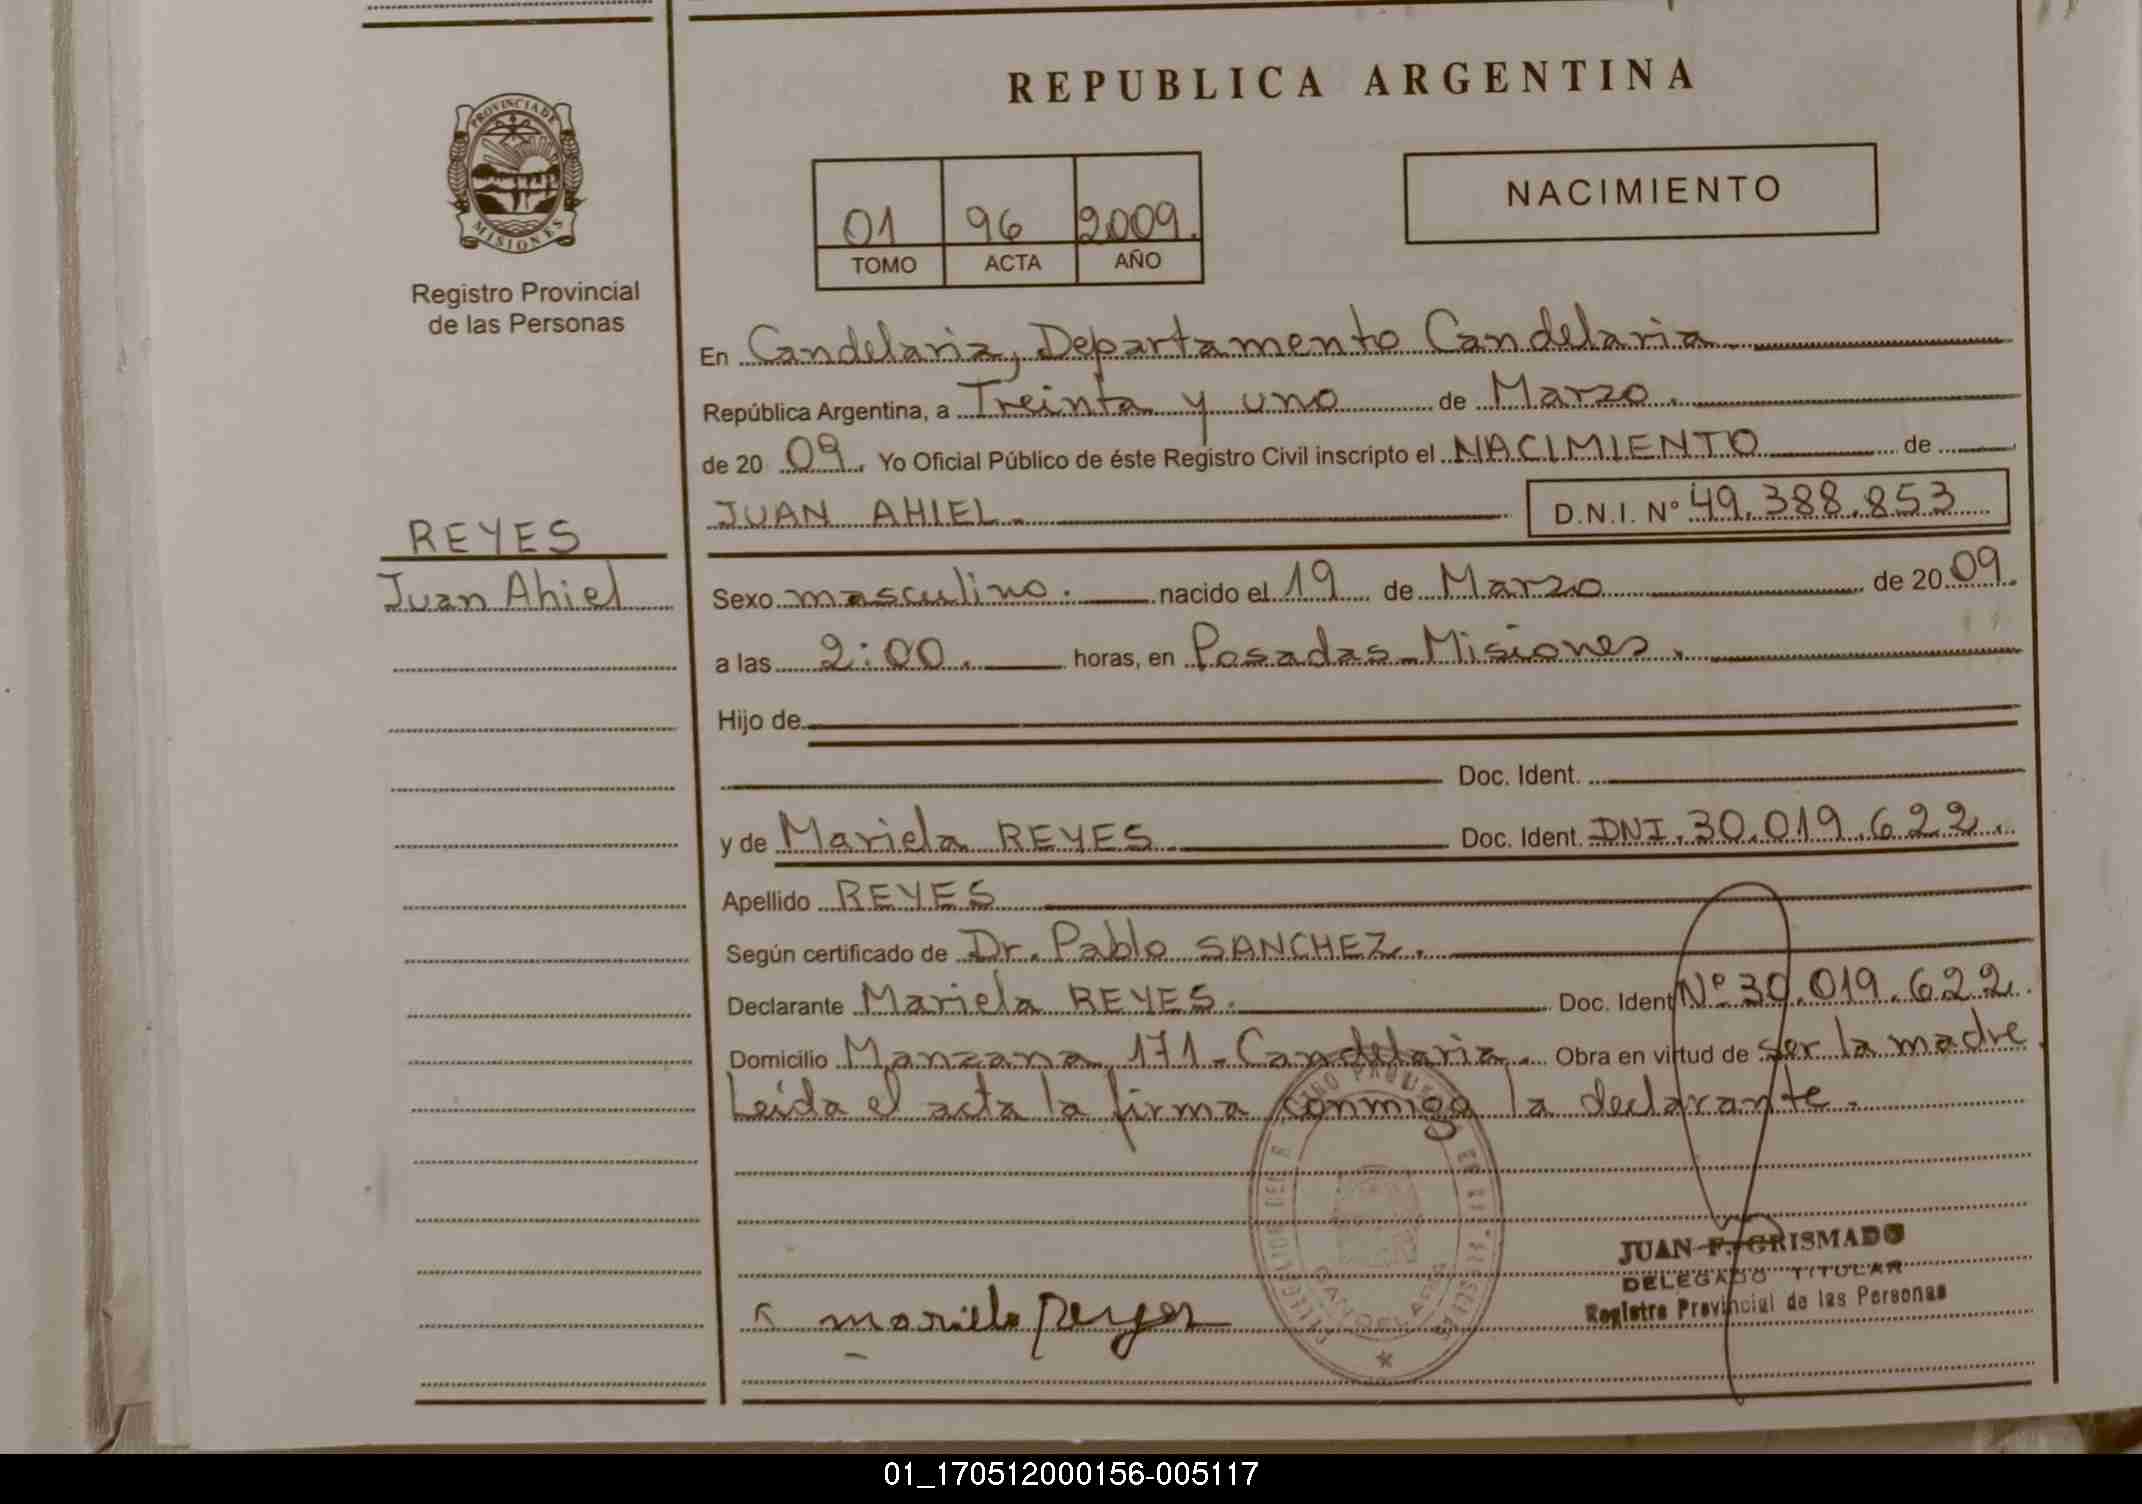 REPUBLICA ARGENTINA
PROVINCIA DE
MISIONES
Registro Provincial
de las Personas
01 96 2009.
TOMO ACTA AÑO
NACIMIENTO
En Candelaria, Departamento Candelaria
República Argentina, a Treinta y uno de Marzo.
de 20 09. Yo Oficial Público de éste Registro Civil inscripto el NACIMIENTO de
JUAN AHIEL. D.N.I. Nº 49.388.853
REYES
Juan Ahiel
Sexo masculino. nacido el 19 de Marzo de 20 09.
a las 2:00. horas, en Posadas-Misiones.
Hijo de
Doc. Ident.
y de Mariela REYES. Doc. Ident. DNI.30.019.622.
Apellido REYES
Según certificado de Dr. Pablo SANCHEZ.
Declarante Mariela REYES. Doc. Ident Nº 30.019.622.
Domicilio Manzana 171-Candelaria. Obra en virtud de ser la madre.
Leida el acta la firma conmigo la declarante.
JUAN F. GRISMADO
DELEGADO TITULAR
Registro Provincial de las Personas
CANDELARIA
mariela reyes
01_170512000156-005117